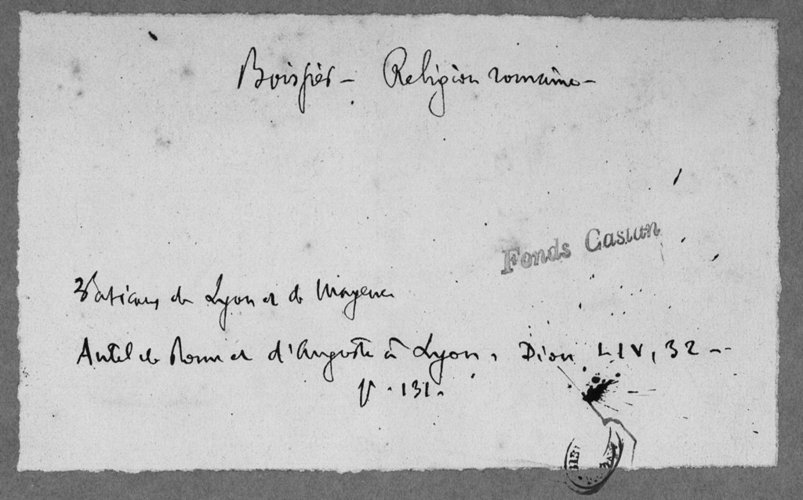 Boissier – Religion romaine –
Fonds Gasian
Vaticans de Lyon et de Mayence
Autel de Rome et d'Auguste à Lyon, Dion LIV, 32 –
p. 131.